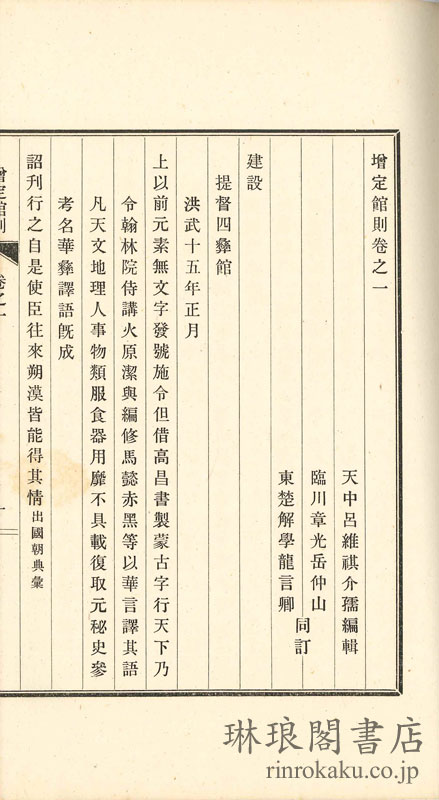 增定館則卷之一
天中呂維祺介孺編輯
臨川章光岳仲山
東楚解學龍言卿
同訂
建設
提督四彝館
洪武十五年正月
上以前元素無文字發號施令但借高昌書製蒙古字行天下乃
令翰林院侍講火原潔與編修馬懿赤黑等以華言譯其語
凡天文地理人事物類服食器用靡不具載復取元秘史參
考名華彝譯語旣成
詔刊行之自是使臣往來朔漠皆能得其情出國朝典彙
增定館則
卷之一
一
琳琅閣書店
rinrokaku.co.jp